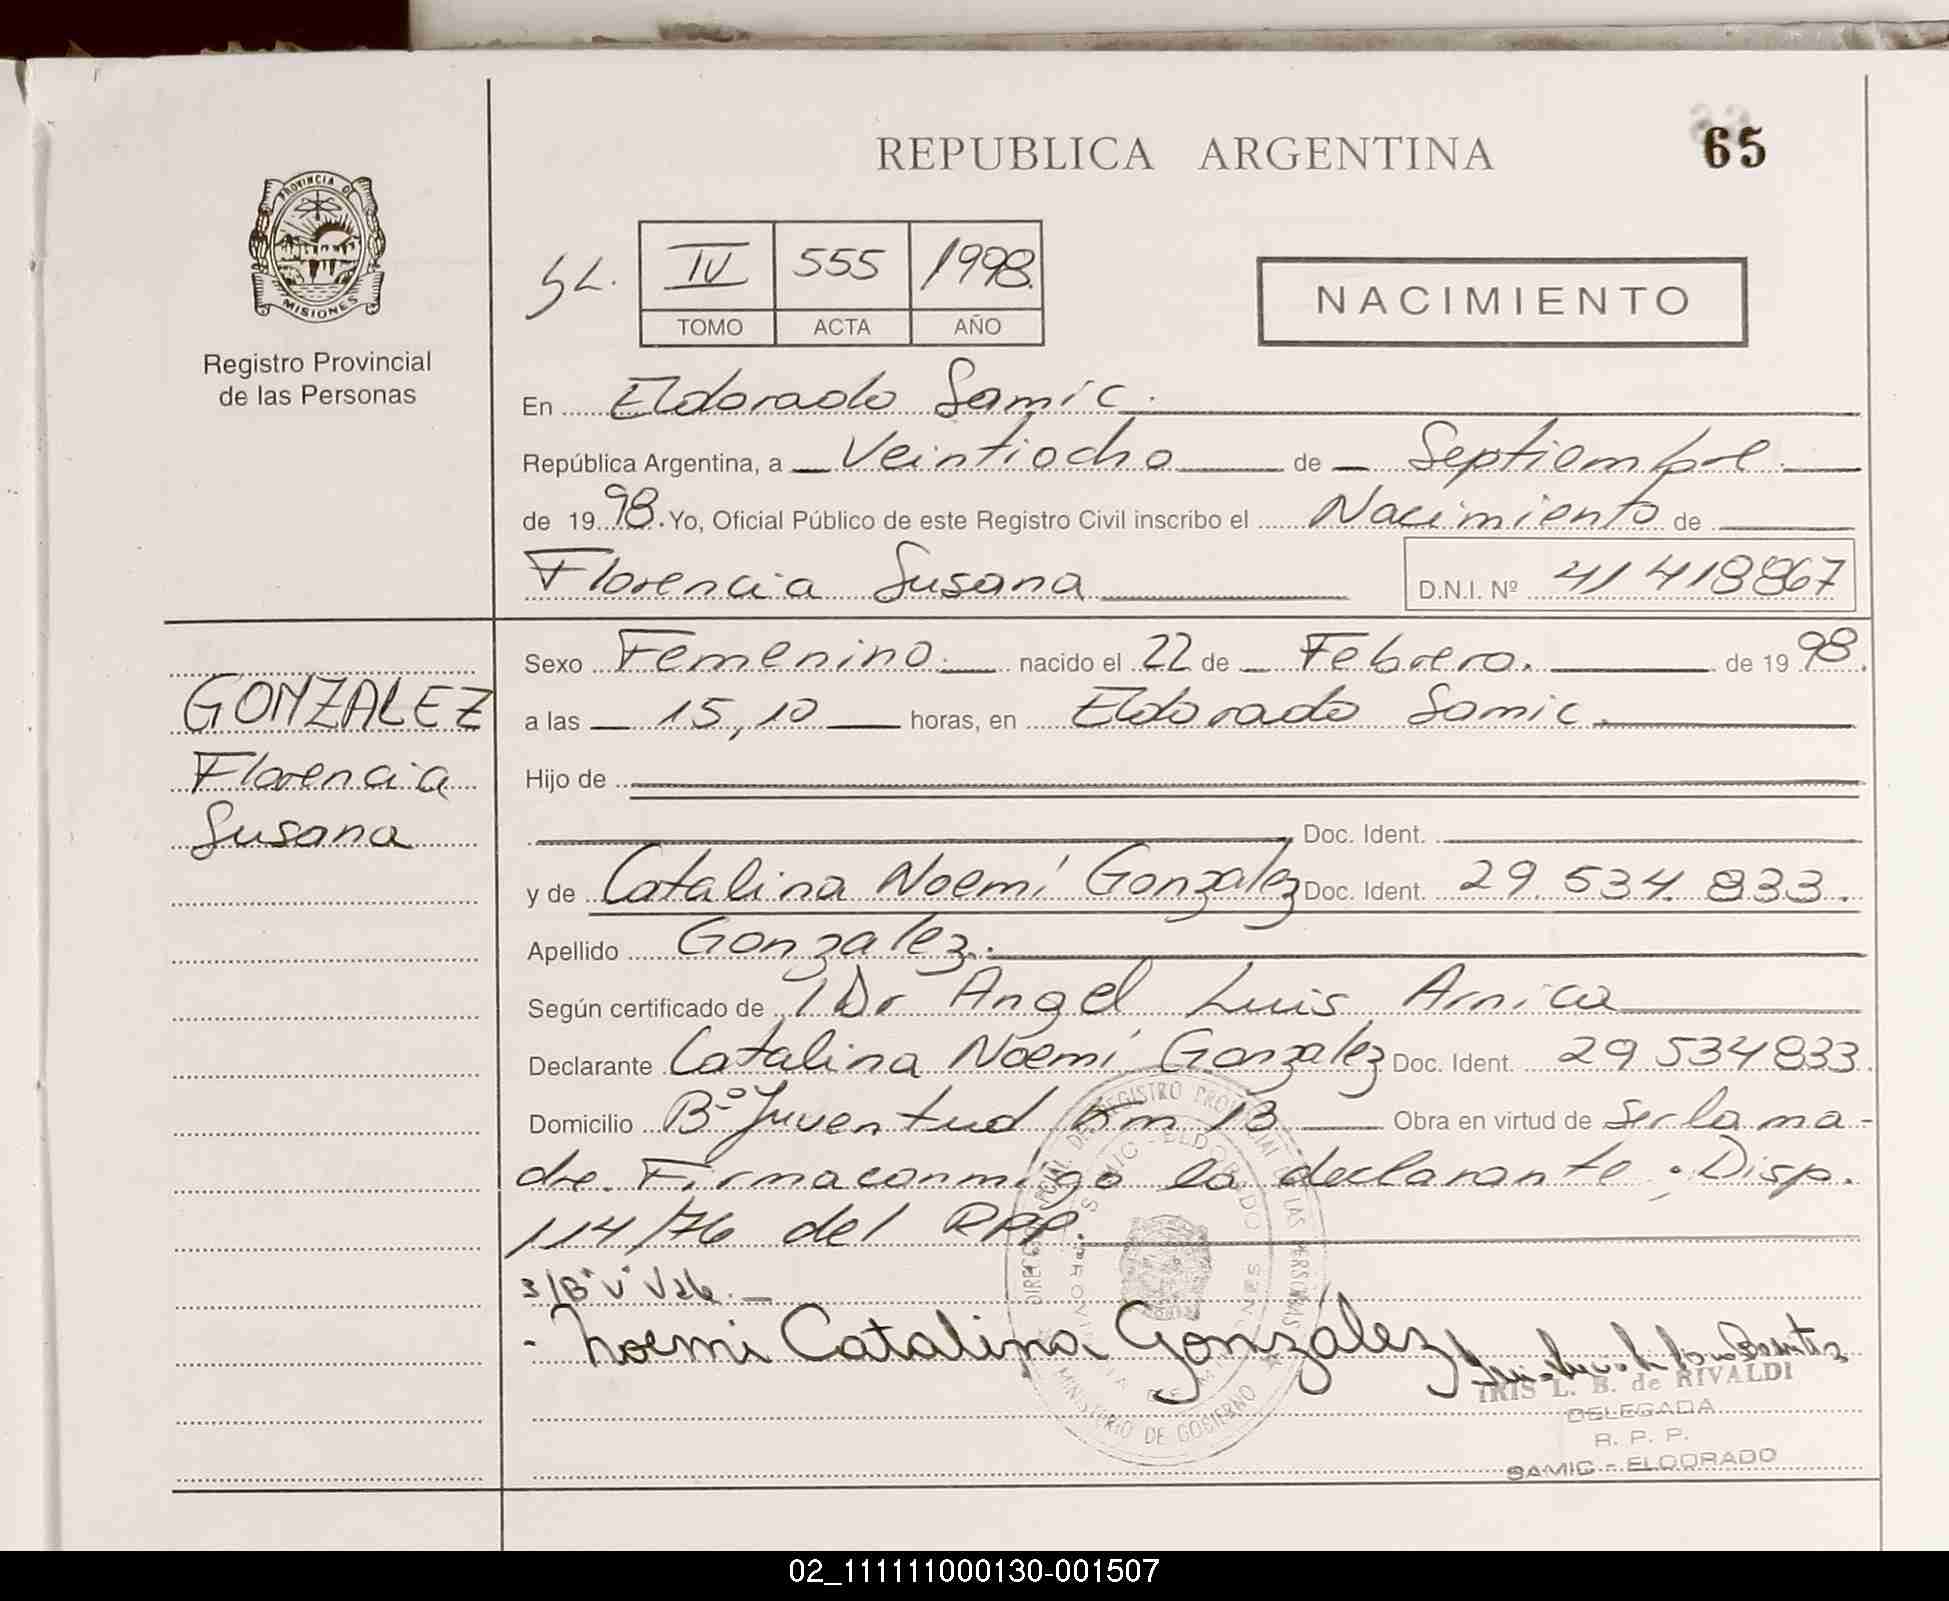 REPUBLICA ARGENTINA
65
PROVINCIA DE
MISIONES
Registro Provincial
de las Personas
IV 555 1998
TOMO ACTA AÑO
NACIMIENTO
En Eldorado Samic.
República Argentina, a Veintiocho de Septiembre
de 1998. Yo, Oficial Público de este Registro Civil inscribo el Nacimiento de
Florencia Susana D.N.I. Nº 41 418867
GONZALEZ
Florencia
Susana
Sexo Femenino. nacido el 22 de Febrero. de 1998.
a las 15,10 horas, en Eldorado Samic.
Hijo de
Doc. Ident.
y de Catalina Noemí Gonzalez Doc. Ident. 29.534.833.
Apellido Gonzalez.
Según certificado de Dr Angel Luis Arnica
Declarante Catalina Noemí Gonzalez Doc. Ident. 29534833.
Domicilio Bº Juventud Km 13 Obra en virtud de Ser la ma-
dre. Firma conmigo la declarante. Disp.
114/76 del RPP.
s/B "V" Vale.
- Noemi Catalina González
IRIS L. B. de RIVALDI
DELEGADA
R. P. P.
SAMIC - ELDORADO
02_111111000130-001507